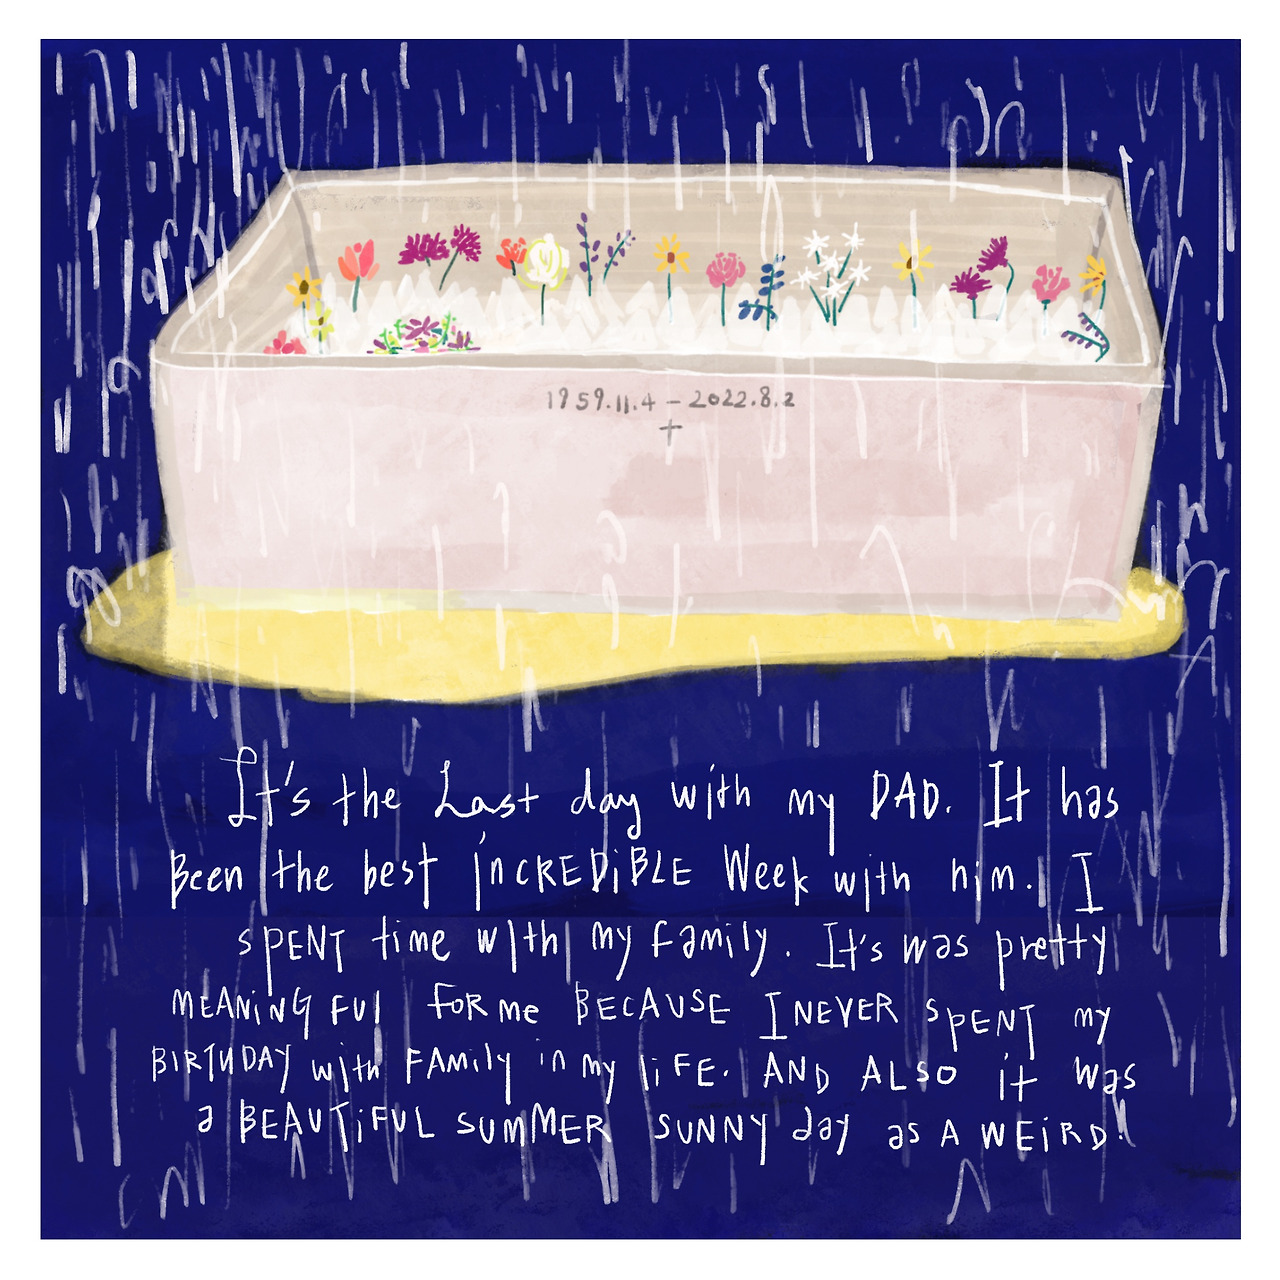 1959.11.4 - 2022.8.2
It's the Last day with my DAD. It has
Been the best iNCREDiBLE Week with him. I
SPENT time with my family. It's was pretty
MEANiNGFUl FoR me BECAUSE I NEVER SPENT my
BIRTHDAY with FAMily in my liFE. AND ALSO it was
a BEAUTiFUL SUMMER SUNNY day as A WEiRD!